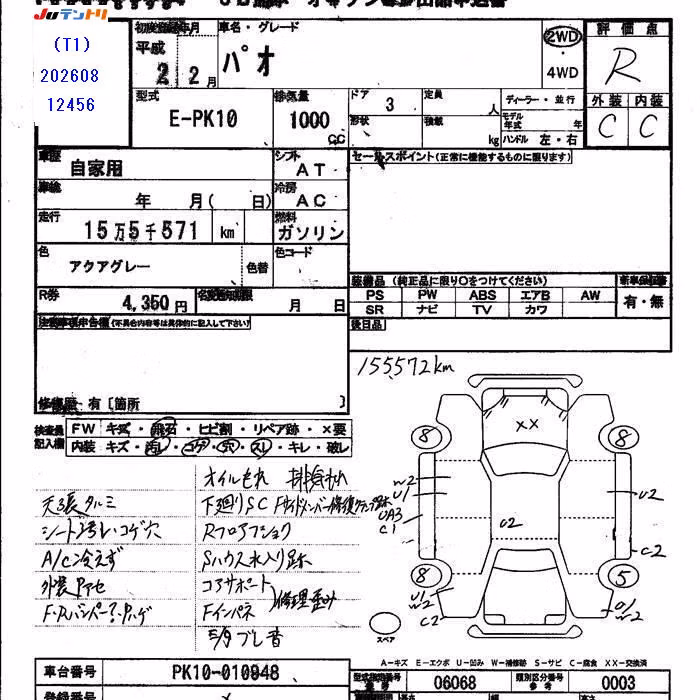 Juテントリ
(T1)
202608
12456
初度登録年月
平成
2 2月
車名・グレード
パオ
2WD
・
4WD
評価点
R
外装 内装
C C
型式
E-PK10
排気量
1000
cc
ドア 3
形状
定員 人
積載 kg
ディーラー・並行
モデル年式 年
ハンドル 左・右
車歴
自家用
シフト
AT
セールスポイント(正常に機能するものに限ります)
車検
年 月( 日)
冷房
AC
走行
15万5千571 km
燃料
ガソリン
色
アクアグレー
色替
色コード
R券
4,350円
名変期限
月 日
装備品 (純正品に限り○をつけてください)
PS PW ABS エアB AW
SR ナビ TV カワ
新車保証書
有・無
後日品
(不具合内容等は具体的に記入して下さい)
修復歴 有〔箇所 〕
155572km
検査員記入欄
FW キズ・飛石・ヒビ割・リペア跡・×要
内装 キズ・汚レ・コゲ・穴・スレ・キレ・破レ
オイルもれ 排気もれ
天張タルミ
下廻りSC Fサイドメンバー修復クランプ跡
シート汚レ コゲ穴
Rフロアプショク
A/C冷えず
Sハウス水入り跡
外装Pアセ
コアサポート
Fインパネ
修理歪み
F・Rバンパー?・Pハゲ
ブレ音
××
8 8
W2
U1
UA3
C1
U2
U2
C2
8 5
U1
W2
C2
U1
W2
スペア
A-キズ E-エクボ U-凹み W-補修跡 S-サビ C-腐食 XX-交換済
車台番号
PK10-010948
型式指定番号
06068
類別区分番号
0003
登録番号
長さ
高さ